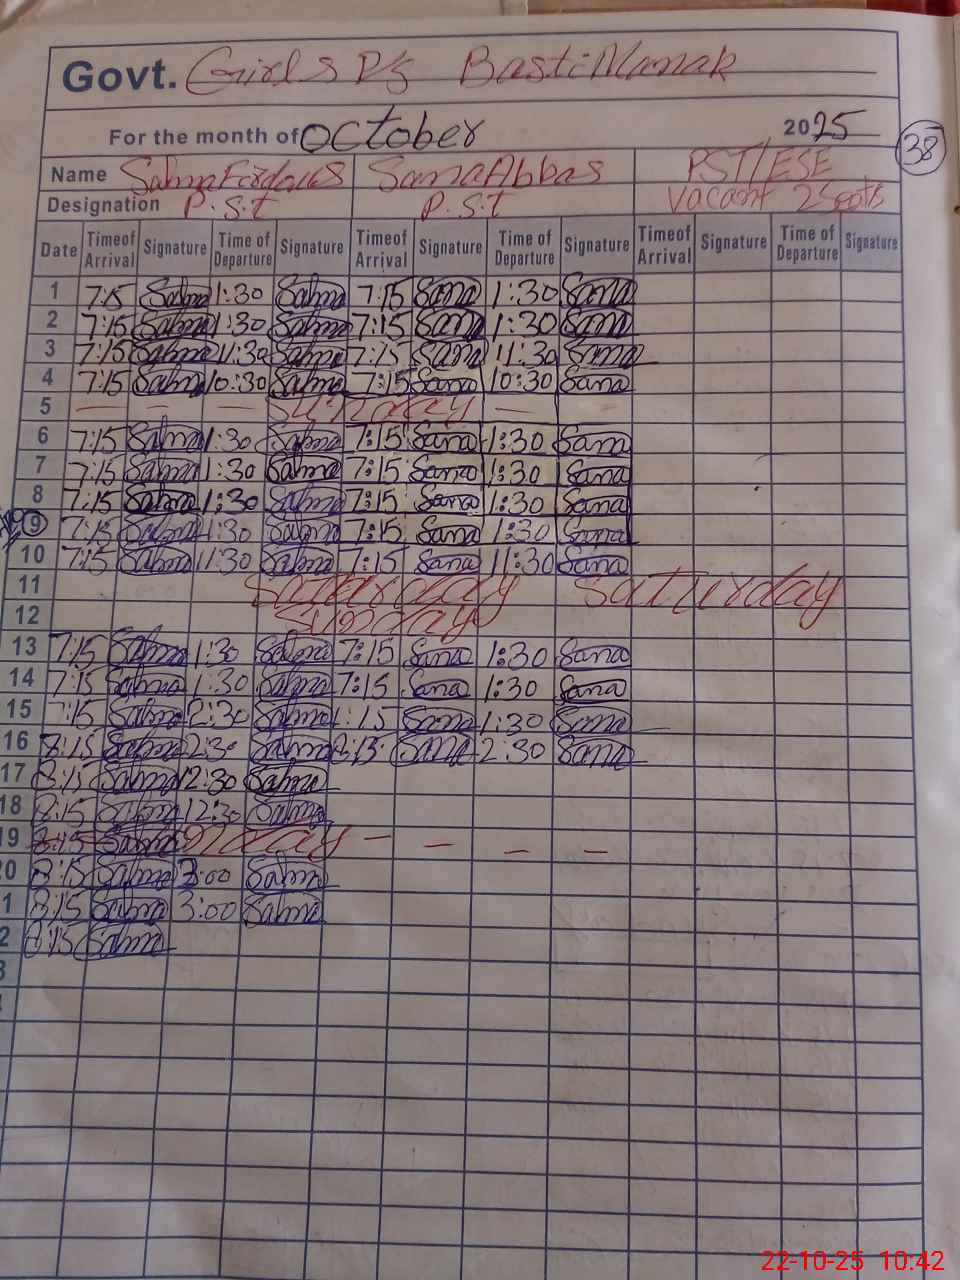 Govt. Girls P/S Basti Manak
For the month of October 2025
38
Name Salma Firdous Sana Abbas PST/ESE
Designation P.S.t P.S.t Vacant 2
Date Timeof Arrival Signature Time of Departure Signature Timeof Arrival Signature Time of Departure Signature Timeof Arrival Signature Time of Departure Signature
1 7:15 Salma 1:30 Salma 7:15 Sana 1:30 Sana
2 7:15 Salma 1:30 Salma 7:15 Sana 1:30 Sana
3 7:15 Salma 11:30 Salma 7:15 Sana 11:30 Sana
4 7:15 Salma 10:30 Salma 7:15 Sana 10:30 Sana
5 — — — Sunday —
6 7:15 Salma 1:30 Salma 7:15 Sana 1:30 Sana
7 7:15 Salma 1:30 Salma 7:15 Sana 1:30 Sana
8 7:15 Salma 1:30 Salma 7:15 Sana 1:30 Sana
9 7:15 Salma 1:30 Salma 7:15 Sana 1:30 Sana
10 7:15 Salma 11:30 Salma 7:15 Sana 11:30 Sana
11 Saturday Saturday
12 Sunday
13 7:15 Salma 1:30 Salma 7:15 Sana 1:30 Sana
14 7:15 Salma 1:30 Salma 7:15 Sana 1:30 Sana
15 7:15 Salma 2:30 Salma 1:15 Sana 1:30 Sana
16 8:15 Salma 2:30 Salma 8:15 Sana 2:30 Sana
17 8:15 Salma 12:30 Salma
18 8:15 Salma 12:30 Salma
19 8:15 Salma — — — —
20 8:15 Salma 3:00 Salma
1 8:15 Salma 3:00 Salma
2 8:15 Salma
3
22-10-25 10:42